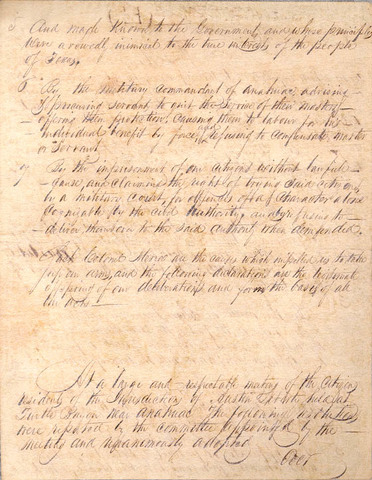 5 And made known to the Government, and whose principles
were avowedly inimical to the true interests of the people
of Texas,
6 By the military commandant of Anahuac, advising
& procuring servants to quit the service of their masters
offering them protection, causing them to labour for his
individual benefit by force, and refusing to compensate master
or servant
7 By the imprisonment of our citizens without lawful
cause and claiming the right of trying said citizens
by a military court, for offences of a character alone
cognizable by the civil authority and refusing to
deliver them over to the said authority when demanded
are the causes which impelled us to take
up our arms, and the following declarations are the legitimate
offspring of our deliberations and form the basis of all
our acts
At a large and respectable meeting of the citizens
residents of the Jurisdiction of Austin held at
Turtle Bayou near Anahuac The following
were reported by the committee appointed by the
meeting and unanimously adopted